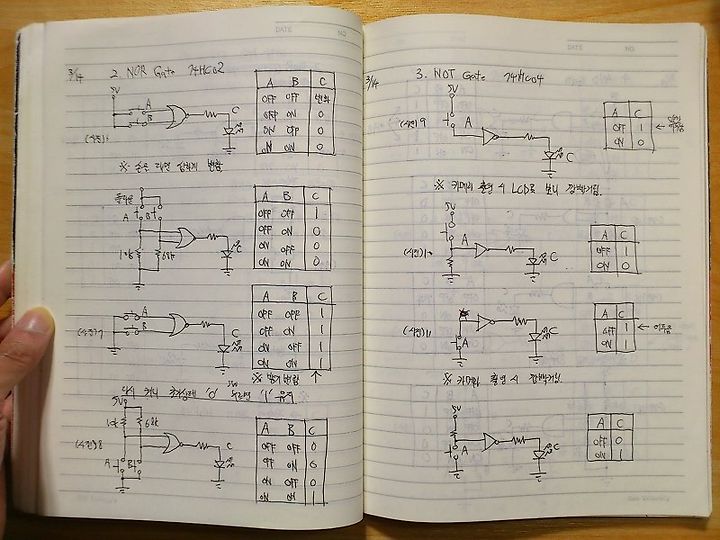 DATE NO.
3/14 2. NOR Gate 74HC02
5V
A
B
C
A B C
OFF OFF 변화
OFF ON 0
ON OFF 0
ON ON 0
A B
10k 68k
C
A B C
OFF OFF 1
OFF ON 0
ON OFF 0
ON ON 0
(사진)7
A
B
C
A B C
OFF OFF 1
OFF ON 1
ON OFF 1
ON ON 1
5V
10k 68k
(사진)8
A B
C
A B C
OFF OFF 0
OFF ON 0
ON OFF 0
ON ON 1
DATE NO.
3/14 3. NOT Gate 74HC04
5V
(사진)9
A
C
A C
OFF 1
ON 0
※ 카메라 촬영 시 LCD로 보니 깜박거림.
5V
A
(사진)10
C
A C
OFF 1
ON 0
(사진)11
A
C
A C
OFF 1 ← 어두움
ON 1
※ 카메라 촬영 시 깜박거림.
5V
A
C
A C
OFF 0
ON 1